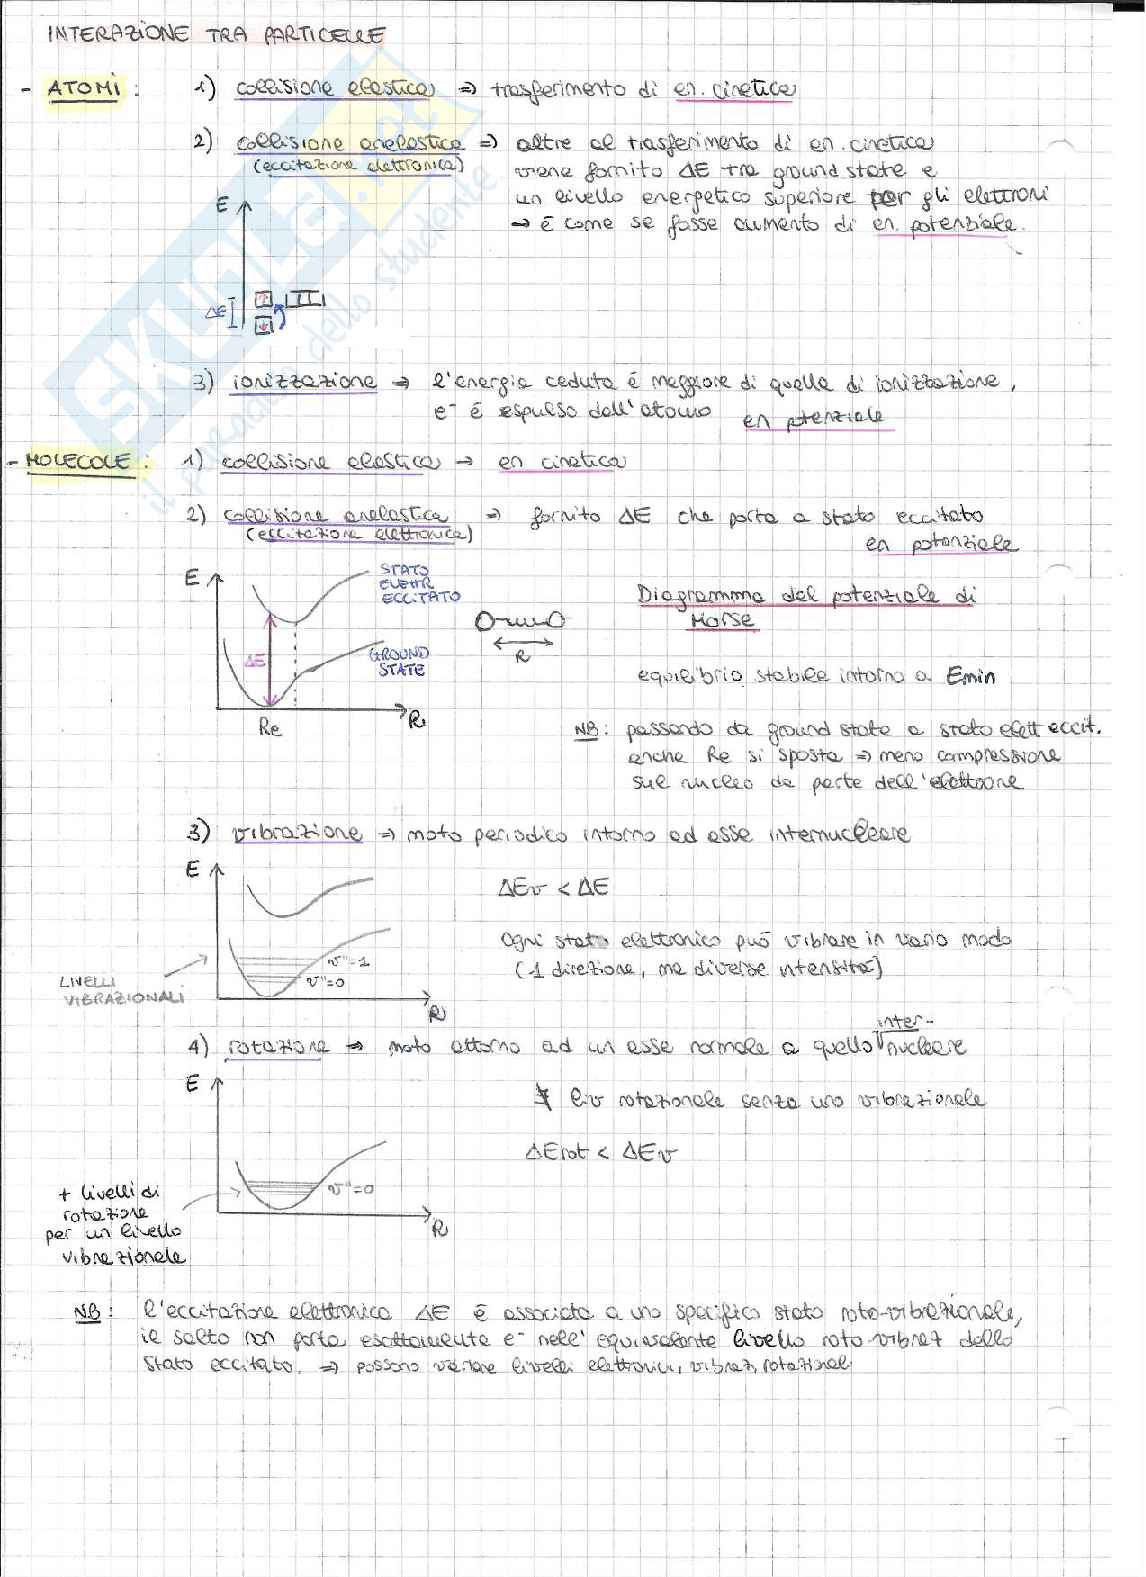 INTERAZIONE TRA PARTICELLE
- ATOMI : 1) collisione elastica ⇒ trasferimento di en. cinetica
2) collisione anelastica ⇒ oltre al trasferimento di en. cinetica
(eccitazione elettronica) viene fornito ΔE tra ground state e
un livello energetico superiore per gli elettroni
→ è come se fosse aumento di en. potenziale.
E
ΔE
3) ionizzazione → l'energia ceduta è maggiore di quella di ionizzazione,
e⁻ è espulso dall'atomo en ptenziale
- MOLECOLE : 1) collisione elastica → en cinetica
2) collisione anelastica ⇒ fornito ΔE che porta a stato eccitato
(eccitazione elettronica) en potenziale
E
STATO
ELETTR
ECCITATO
ΔE
GROUND
STATE
Re
R
R
Diagramma del potenziale di
Morse
equilibrio stabile intorno a Emin
NB : passando da ground state a stato elett eccit.
anche Re si sposta ⇒ meno compressione
sul nucleo da parte dell'elettrone
3) vibrazione ⇒ moto periodico intorno ad asse internucleare
E
v''=1
v''=0
R
LIVELLI
VIBRAZIONALI
ΔEv < ΔE
Ogni stato elettronico può vibrare in vario modo
(1 direzione, ma diverse intensità)
4) rotazione ⇒ moto attorno ad un asse normale a quello inter-nucleare
E
v''=0
R
+ livelli di
rotazione
per un livello
vibrazionale
∄ liv rotazionale senza uno vibrazionale
ΔErot < ΔEv
NB : l'eccitazione elettronica ΔE è associata a uno specifico stato roto-vibrazionale,
il salto non porta esattamente e⁻ nell'equivalente livello roto-vibraz dello
stato eccitato. ⇒ possono variare livelli elettronici, vibraz, rotazionali
SKUOLA.net
il paradiso dello studente